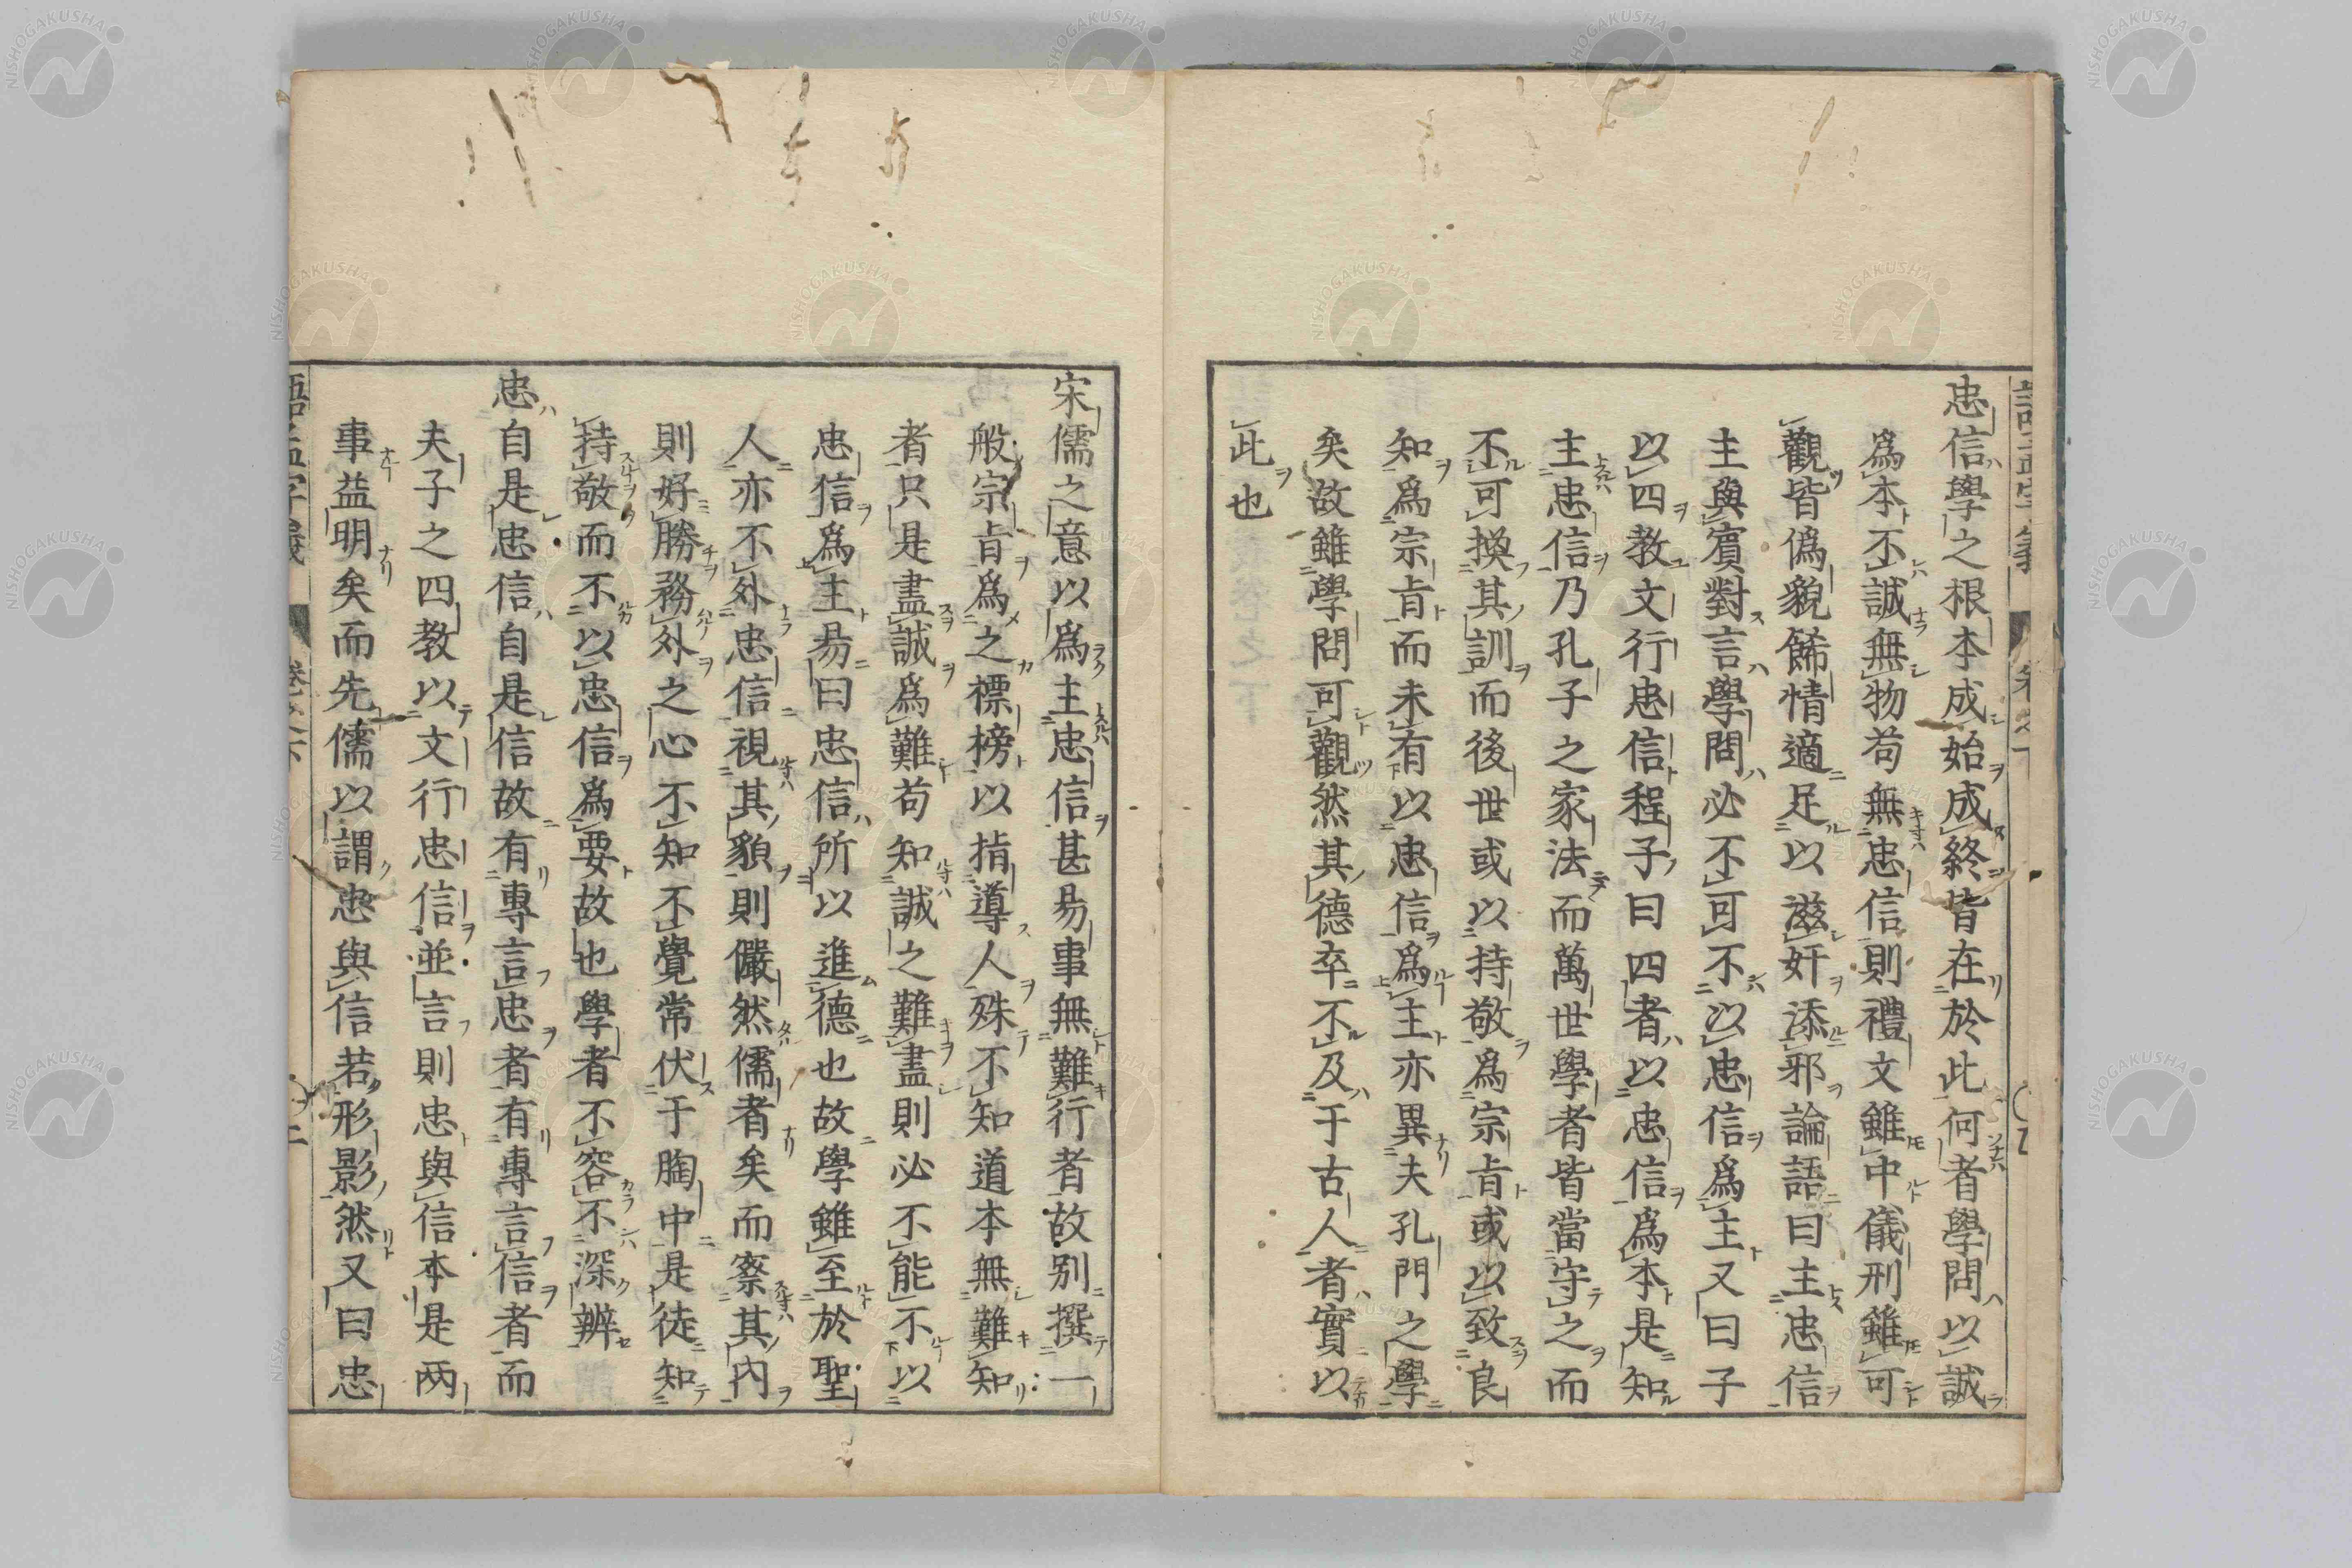 忠信學之根本成始成終皆在於此何者學問以誠
爲本不誠無物苟無忠信則禮文雖中儀刑雖可
觀皆僞貌餙情適足以滋奸添邪論語曰主忠信
主與賓對言學問必不可不以忠信爲主又曰子
以四教文行忠信程子曰四者以忠信爲本是知
主忠信乃孔子之家法而萬世學者皆當守之而
不可換其訓而後世或以持敬爲宗旨或以致良
知爲宗旨而未有以忠信爲主亦異夫孔門之學
矣故雖學問可觀然其德卒不及于古人者實以
此也
宋儒之意以爲主忠信甚易事無難行者故別撰一
般宗旨爲之標榜以指導人殊不知道本無難知
者只是盡誠爲難苟知誠之難盡則必不能不以
忠信爲主易曰忠信所以進德也故學雖至於聖
人亦不外忠信視其貌則儼然儒者矣而察其內
則好勝務外之心不知不覺常伏于胸中是徒知
持敬而不以忠信爲要故也學者不容不深辨
忠自是忠信自是信故有專言忠者有專言信者而
夫子之四教以文行忠信並言則忠與信本是兩
事益明矣而先儒以謂忠與信若形影然又曰忠
語孟字義 卷之下
NISHOGAKUSHA